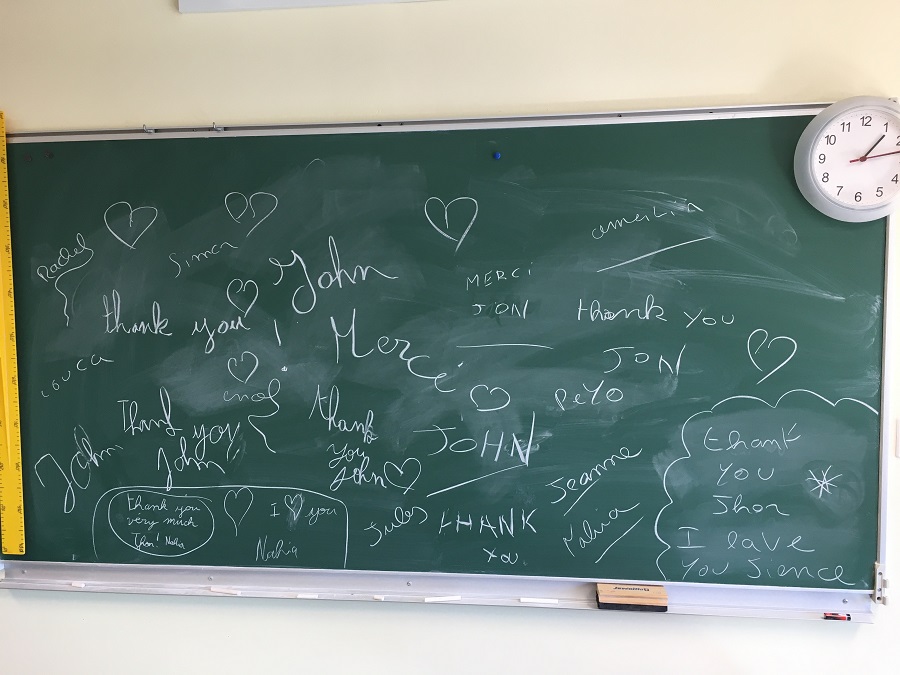 Rachel
Simon
amelia
John
MERCi
JON
thank you
thank you
Merci
JON
Louca
enol
PeYo
Thank
you
John
John
thank
you
John
JOHN
Jeanne
thank
you
Jhon
I lave
you Sience
thank you
very much
Jhon! Nahia
I you
Nahia
Jules
tHANK
you
Malvia
11 12 1
10 2
9
8 4
7 6 5